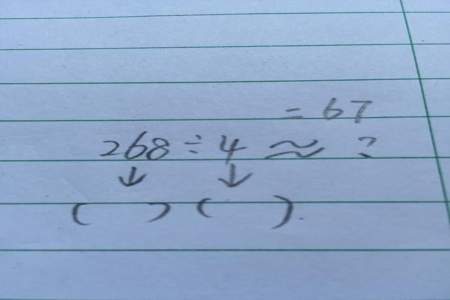 = 67
268 ÷ 4 ≈ ?
↓ ↓
( ) ( ).